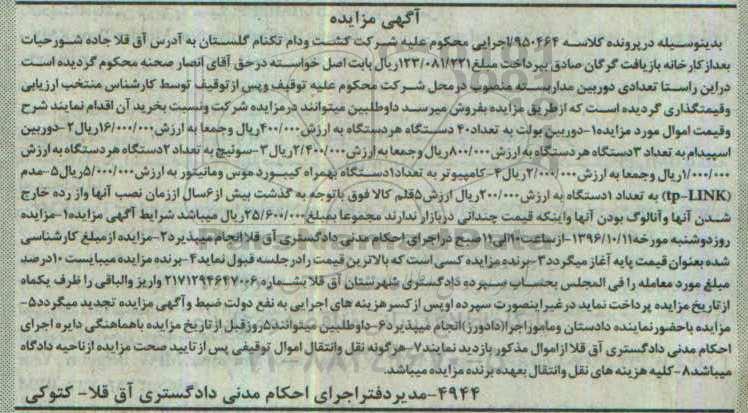 آگهی مزایده
بدینوسیله درپرونده کلاسه ۹۵۰۴۶۴/اجرایی محکوم علیه شرکت کشت ودام تکنام گلستان به آدرس آق قلا جاده شورحیات
بعدازکارخانه بازیافت گرگان صادق بپرداخت مبلغ۱۲۳/۰۸۱/۲۳۱ریال بابت اصل خواسته درحق آقای انصار صحنه محکوم گردیده است
دراین راستا تعدادی دوربین مداربسته منصوب درمحل شرکت محکوم علیه توقیف وپس ازتوقیف توسط کارشناس منتخب ارزیابی
وقیمتگذاری گردیده است که ازطریق مزایده بفروش میرسد داوطلبین میتوانند درمزایده شرکت ونسبت بخرید آن اقدام نمایند شرح
وقیمت اموال مورد مزایده۱-دوربین بولت به تعداد۴۰ دستگاه هردستگاه به ارزش۴۰۰/۰۰۰ریال وجمعا به ارزش۱۶/۰۰۰/۰۰۰ریال۲-دوربین
اسپیدام به تعداد ۳دستگاه هر دستگاه به ارزش۸۰۰/۰۰۰ریال وجمعا به ارزش۲/۴۰۰/۰۰۰ریال۳-سوئیچ به تعداد۲دستگاه هردستگاه به ارزش
۱/۰۰۰/۰۰۰ریال وجمعا به ارزش۲/۰۰۰/۰۰۰ریال۴-کامپیوتر به تعداد۱دستگاه بهمراه کیبورد موس ومانیتور به ارزش۵/۰۰۰/۰۰۰ریال۵-مدم
(tp-LINK) به تعداد ۱دستگاه به ارزش۲۰۰/۰۰۰ریال ارزش۵قلم کالا فوق باتوجه به گذشت بیش از۶سال اززمان نصب آنها واز رده خارج
شدن آنها وآنالوگ بودن آنها واینکه قیمت چندانی دربازار ندارند مجموعا بمبلغ۲۵/۶۰۰/۰۰۰ریال میباشد شرایط آگهی مزایده۱-مزایده
روزدوشنبه مورخه۱۳۹۶/۱۰/۱۱-ازساعت۱۰الی۱۱صبح دراجرای احکام مدنی دادگستری آق قلا انجام میپذیرد۲-مزایده ازمبلغ کارشناسی
شده بعنوان قیمت پایه آغاز میگردد۳-برنده مزایده کسی است که بالاترین قیمت رادرجلسه قبول نماید۴-برنده مزایده میبایست ۱۰درصد
مبلغ مورد معامله را فی المجلس بحساب سپرده دادگستری شهرستان آق قلا بشماره ۲۱۷۱۲۹۴۶۴۷۰۰۶ واریز والباقی را ظرف یکماه
ازتاریخ مزایده پرداخت نماید درغیراینصورت سپرده اوپس ازکسرهزینه های اجرایی به نفع دولت ضبط وآگهی مزایده تجدید میگردد۵-
مزایده باحضورنماینده دادستان وماموراجرا(دادورز)انجام میپذیرد۶-داوطلبین میتوانند۵روزقبل ازتاریخ مزایده باهماهنگی دایره اجرای
احکام مدنی دادگستری آق قلا ازاموال مذکور بازدید نمایند۷-هرگونه نقل وانتقال اموال توقیفی پس ازتایید صحت مزایده ازناحیه دادگاه
میباشد۸-کلیه هزینه های نقل وانتقال بعهده برنده مزایده میباشد.
۴۹۴۴-مدیردفتراجرای احکام مدنی دادگستری آق قلا- کتوکی